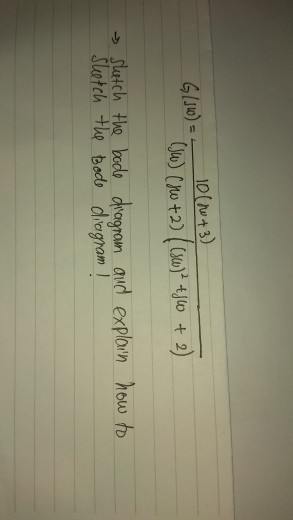 G(jω) = 10(jω+3) / (jω)(jω+2)((jω)² + jω + 2)
→ sketch the bode diagram and explain how to
sketch the bode diagram!